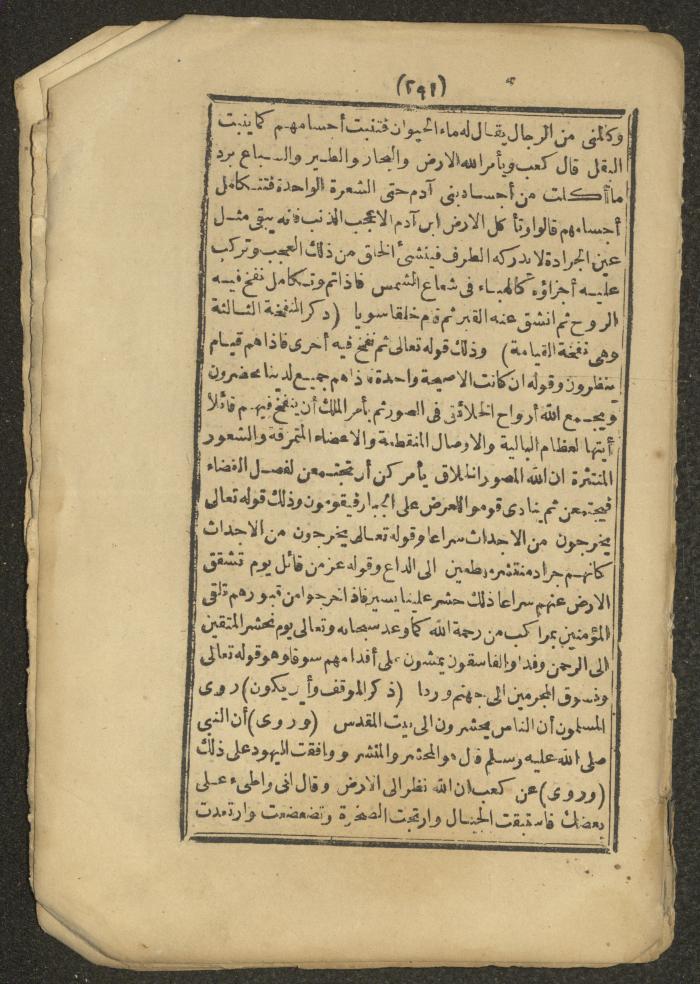 (٢٩١)
وكالمنى من الرجال يقال له ماء الحيوان فتنبت أجسامهم كما ينبت
البقل قال كعب ويأمر الله الارض والبحار والطير والسباع برد
ما أكلت من أجساد بنى آدم حتى الشعرة الواحدة فتتكامل
أجسامهم قالوا وتأكل الارض ابن آدم الا عجب الذنب فانه يبقى مثل
عين الجرادة لا يدركه الطرف فينشئ الخلق من ذلك العجب وتركب
عليه أجزاؤه كالهباء فى شعاع الشمس فاذا تم وتكامل نفخ فيه
الروح ثم انشق عنه القبر ثم قام خلقا سويا (ذكر النفخة الثالثة
وهى نفخة القيامة) وذلك قوله تعالى ثم نفخ فيه أخرى فاذا هم قيام
ينظرون وقوله ان كانت الا صيحة واحدة فاذا هم جميع لدينا محضرون
ويجمع الله أرواح الخلائق فى الصور ثم يأمر الملك أن ينفخ فيهم قائلا
أيتها العظام البالية والاوصال المنقطعة والاعضاء المتمزقة والشعور
المنتثرة ان الله المصور الخلاق يأمركن أن تجتمعن لفصل القضاء
فيجتمعن ثم ينادى قوموا للعرض على الجبار فيقومون وذلك قوله تعالى
يخرجون من الاجداث سراعا وقوله تعالى يخرجون من الاجداث
كانهم جراد منتشر مهطعين الى الداع وقوله عز من قائل يوم تشقق
الارض عنهم سراعا ذلك حشر علينا يسير فاذا خرجوا من قبورهم تلقى
المؤمنين بمراكب من رحمة الله كما وعد سبحانه وتعالى يوم نحشر المتقين
الى الرحمن وفدا والفاسقون يمشون على أقدامهم سوقا وهو قوله تعالى
ونسوق المجرمين الى جهنم وردا (ذكر الموقف وأين يكون) روى
المسلمون أن الناس يحشرون الى بيت المقدس (وروى) أن النبى
صلى الله عليه وسلم قال هو المحشر والمنشر ووافقت اليهود على ذلك
(وروى) عن كعب ان الله نظر الى الارض وقال انى واطىء على
بعضك فاستبقت الجبال وارتجت الصخرة وتضعضعت وارتعدت